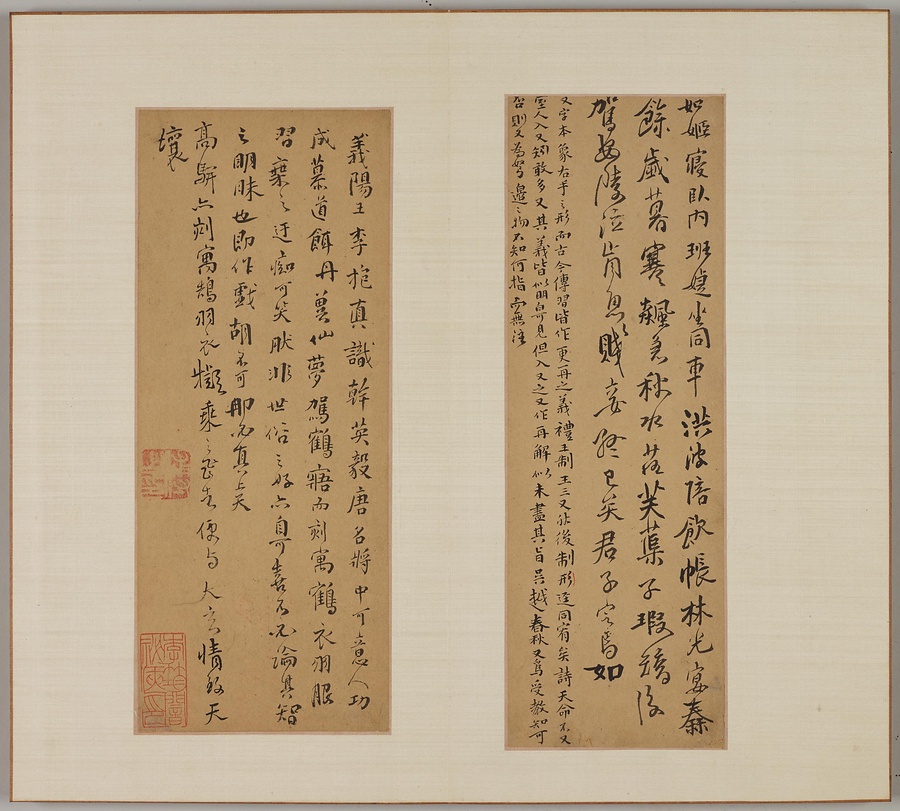 如姬寢臥內班婕坐同車洪波陪飲帳林光宴秦
餘歲暮寒飆急秋水落芙蕖子瑕矯後
駕安陵泣前魚賤妾終已矣君子定焉如
又字本象右手之形而古今傳習皆作更再之義禮王制王三又然後制刑達同宥矣詩天命不又
室人入又矧敢多又其義皆似明白可見但入又之又作再解似未盡其旨吳越春秋又為受教知可
否則又為弩邊之物不知何指而無注
義陽王李抱真識幹英毅唐名將中可意人功
成慕道餌丹冀仙夢駕鶴寤而刻寓鶴衣羽服
習乘之迂癡可笑然非世俗之好亦自可喜不論其智
之明昧也即作戲胡不可即為真上天
高駢亦刻寓鵠羽衣擬乘之
天
壤